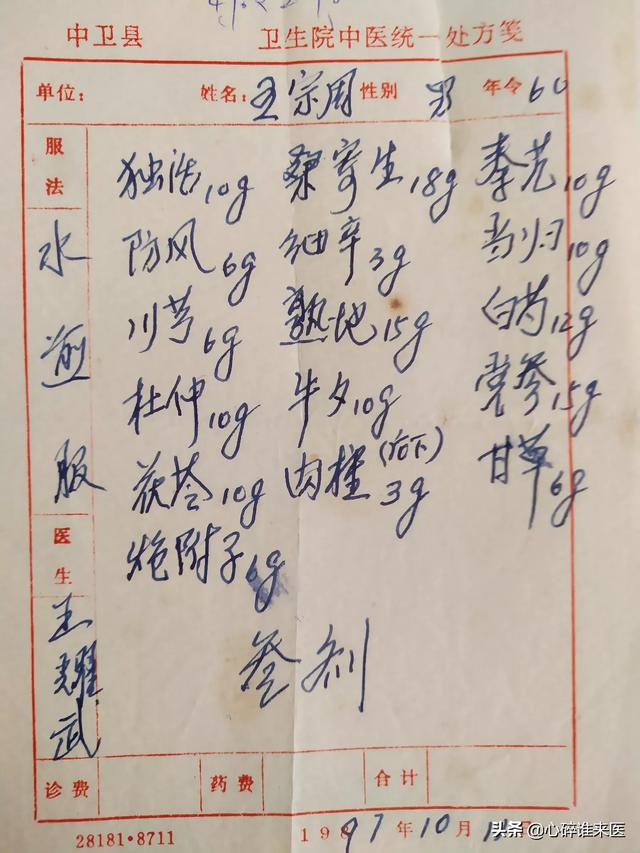 中卫县 卫生院中医统一处方笺
单位: 姓名: 王宗周 性别 男 年令 60
服法
水煎服
独活10g 桑寄生18g 秦艽10g
防风6g 细辛3g 当归10g
川芎6g 熟地15g 白芍12g
杜仲10g 牛夕10g 党参15g
茯苓10g 肉桂(后下)3g 甘草6g
炮附子6g
叁剂
医生
王耀武
诊费 药费 合计
28181·8711 1997年10月
头条 @心碎谁来医